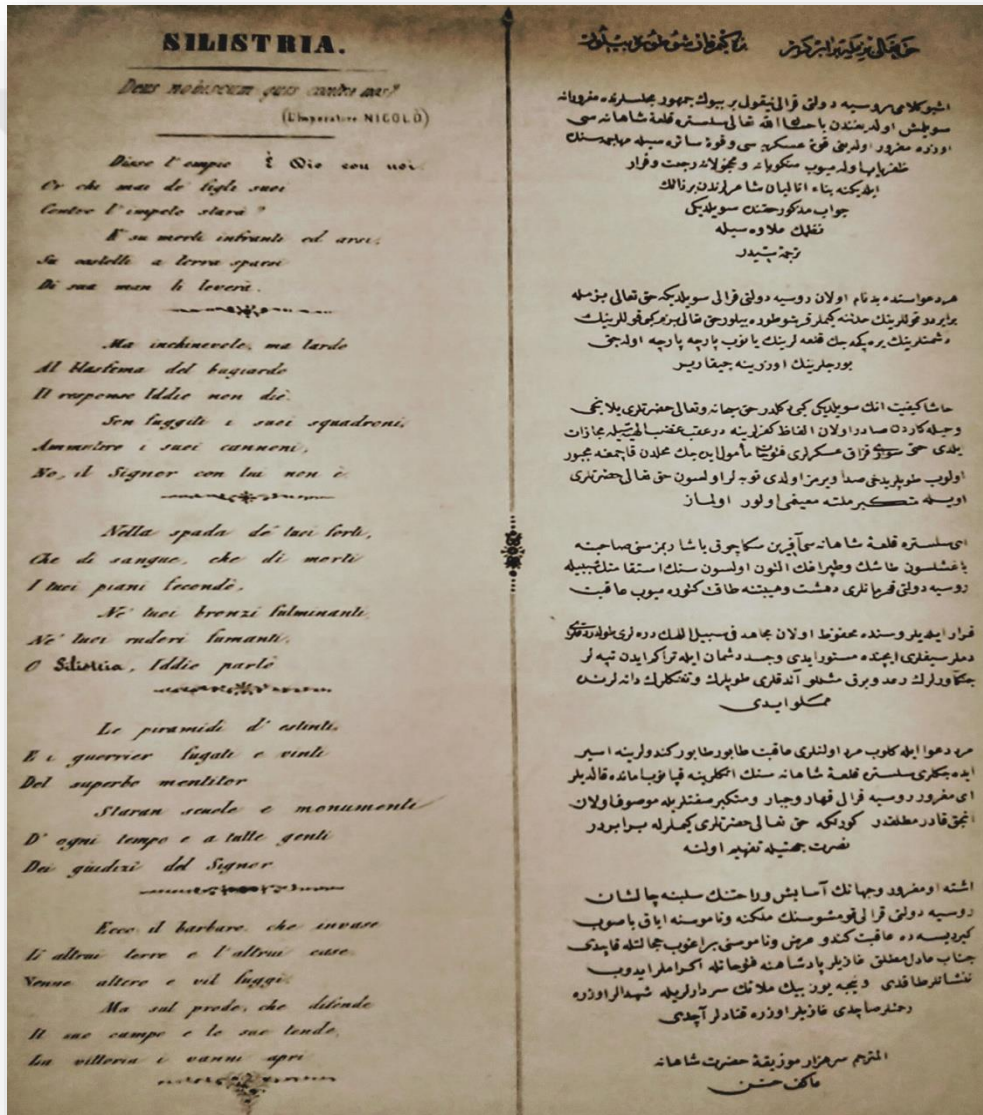 SILISTRIA.
Deus nobiscum quis contra nos?
(L'Imperatore NICOLÒ)
Disse l'empio È Dio con noi.
Or chi mai de' figli suoi
Contro l'impeto starà?
E su morti infranti ed arsi,
Su castelli a terra sparsi
Di sua man li leverà.
Ma inchinevole, ma tardo
Al blasfema del bugiardo
Il responso Iddio non diè.
Son fuggiti i suoi squadroni,
Ammutiro i suoi cannoni,
No, il Signor con lui non è
Nella spada de' tuoi forti,
Che di sangue, che di morti
I tuoi piani fecondò,
Ne' tuoi bronzi fulminanti,
Ne' tuoi ruderi fumanti,
O Silistria, Iddio parlò
Le piramidi d' estinti,
E i guerrier fugati e vinti
Del superbo mentitor
Staran scuole e monumenti
D' ogni tempo e a tutte genti
Dei giudizi del Signor
Ecco il barbaro, che invase
Li altrui terre e l'altrui case
Venne altero e vil fuggì.
Ma sul prode, che difende
Il suo campo e le sue tende,
La vittoria i vanni aprì
حق تعالى بزمله برابردر
اشبو كلامى روسيه دولتى قرالى نيقول بر بيوك جمهور مجلسلرنده مغرورانه
سويلمش اولديغندن باحث الله تعالى سلستره قلعۀ شاهانه سى
اوزره مغرور اولديغى قوۀ عسكريه سى وقوۀ سائره سيله مهاجمه سنك
ظفرياب اوله ميوب منكوبانه ومخذولانه رجعت وفرار
ايلديكنه بناء ايتاليان شاعرلرندن بر ذاتك
جواب مذكور حقنده سويلديكى
نظمك علاوه سيله
ترجمه سيدر
هر دعواسنده بدنام اولان روسيه دولتى قرالى سويلديكه حق تعالى بزمله
برابردر قوللرينك حدتنه كيملر قرشو طوره بيلور حق تعالى بزم كبى قوللرينك
دشمنلرينك يره كچه جك قلعه لرينك يانوب پارچه پارچه اوله جق
بورجلرينك اوزرينه چيقاريور
حاشا كيفيت انك سويلديكى كبى دكلدر حق سبحانه وتعالى حضرتلرى يلانجى
وحيله كاردن صادر اولان الفاظ كفرلرينه در عقب غضب الهيسيله مجازات
اولوب طوپلريدخى صدا ويرمز اولدى توبه لر اولسون حق تعالى حضرتلرى
اويله متكبر ملته معينى اولور اولماز
اى سلستره قلعۀ شاهانه سى آفرين
باغشلسون طاشك وطپراغك التون اولسون سنك استقامتك سببيله
روسيه دولتى قهرمانلرى دهشت وهيبتنه طاقت كتوره ميوب عاقبت
فرار ايلديلر وسنده محفوظ اولان مجاهد فى سبيل اللهك
ايچنده مستور ايدى وجسد دشمان ايله تراكم ايدن تپه لر
رعد وبرق مثللو آتدقلرى طوپلرك وتفنكلرك دانه لرندن
مملو ايدى
مرد دعوا ايله كلوب مرد اولنلرى عاقبت طابور طابور كندولرينه اسير
ايده جكلرى سلستره قلعۀ شاهانه سنك
اى مغرور روسيه قرالى قهار وجبار ومتكبر صفتلريله موصوف اولان
انجق قادر مطلقدر كوردكه حق تعالى حضرتلرى كيملرله برابردر
نصرت جهتيله تفهيم اولنه
اشته او مغرور وجهانك آسايش وراحتنك سلبنه چالشان
روسيه دولتى قرالى قومشوسنك ملكنه وناموسنه اياق باصوب
كيرديسه ده عاقبت كندو عرض وناموسنى براغوب خجالتله قاچدى
جناب عادل مطلق غازيلر پادشاهنه فتوحاتله اكراملر ايدوب
نشانلر طاقدى ونيجه يوز بيك ملائك سردارلريله شهدالر اوزره
رحمتلر صاچدى غازيلر اوزره قنادلر آچدى
المترجم سرهزار موزيقۀ حضرت شاهانه
عاكف حسن